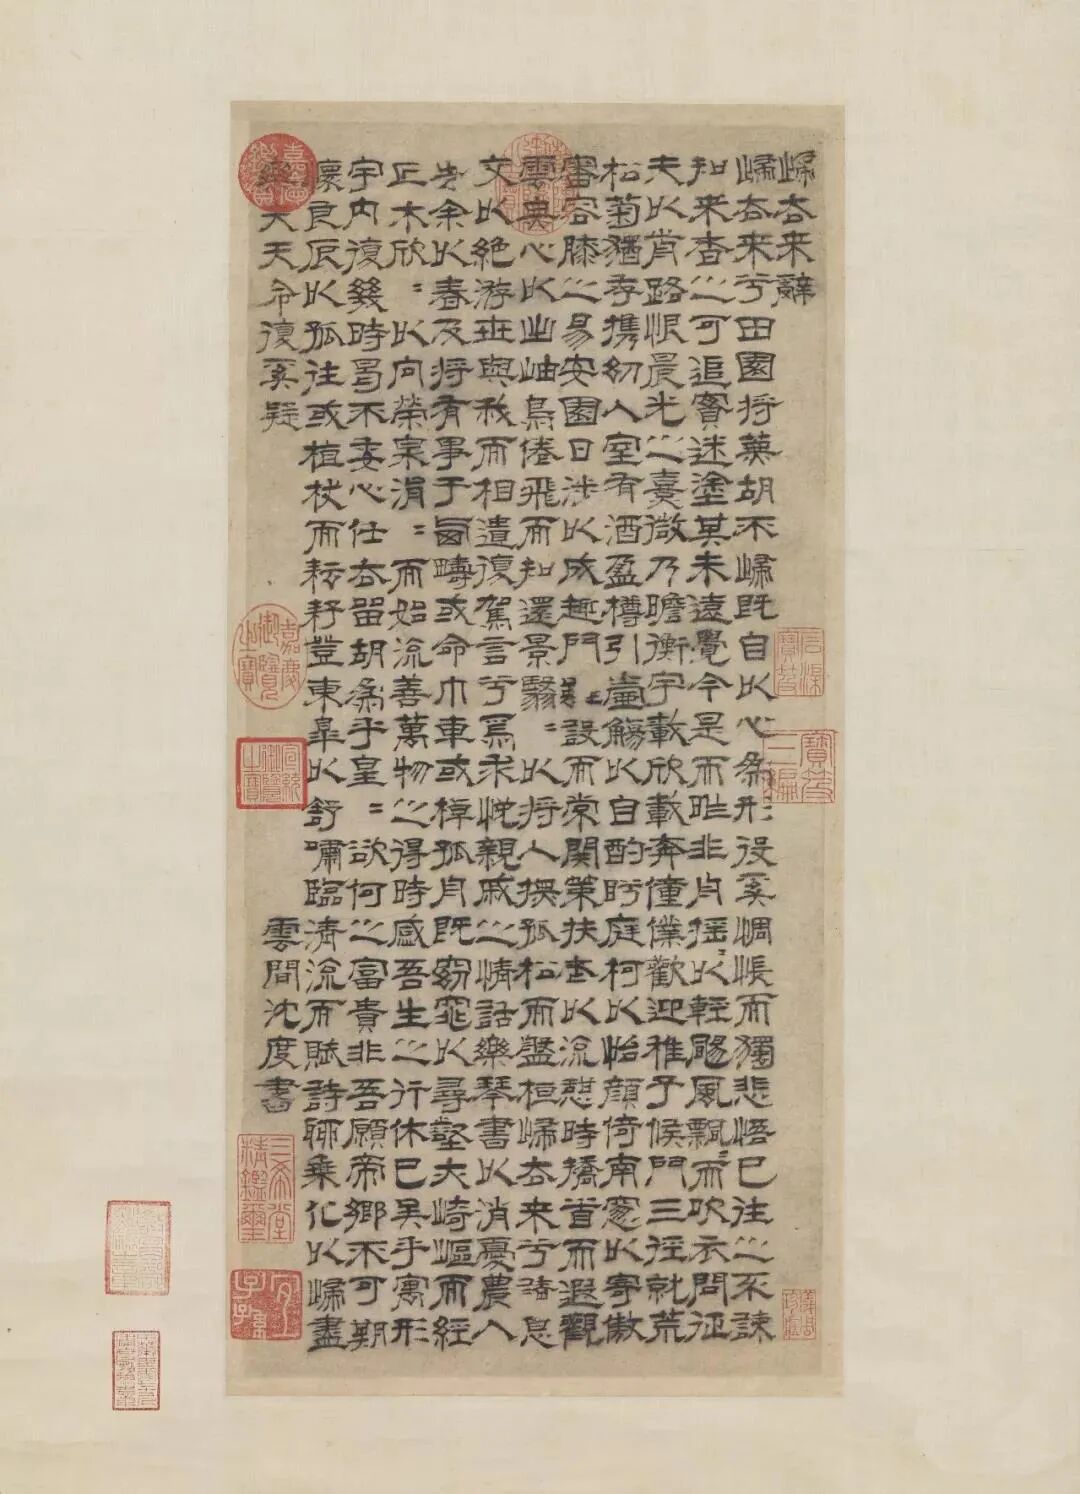 歸去来辭
歸去来兮田園將蕪胡不歸既自以心為形役奚惆悵而獨悲悟已往之不諫
知来者之可追實迷塗其未遠覺今是而昨非舟摇〻以輕颺風飄〻而吹衣問征
夫以前路恨晨光之熹微乃瞻衡宇載欣載奔僮僕歡迎稚子候門三徑就荒
松菊猶存携幼入室有酒盈樽引壺觴以自酌眄庭柯以怡顏倚南窓以寄傲
審容膝之易安園日涉以成趣門設而常關策扶老以流憩時矯首而遐觀
雲無心以出岫鳥倦飛而知還景翳〻以將入撫孤松而盤桓歸去来兮請息
交以絕游世與我而相遺復駕言兮焉求悅親戚之情話樂琴書以消憂農人
告余以春及將有事于西疇或命巾車或棹孤舟既窈窕以尋壑夫崎嶇而經
丘木欣〻以向榮泉涓〻而始流善萬物之得時感吾生之行休已矣乎寓形
宇内復幾時曷不委心任去留胡為乎皇〻欲何之富貴非吾願帝鄉不可期
懷良辰以孤往或植杖而耘耔登東皋以舒嘯臨清流而賦詩聊乘化以歸盡
樂夫天命復奚疑
雲間沈度書
石渠寶笈
寶笈三編
嘉慶鑑賞
嘉慶御覽之寶
宣統御覽之寶
三希堂精鑑璽
宜子孫